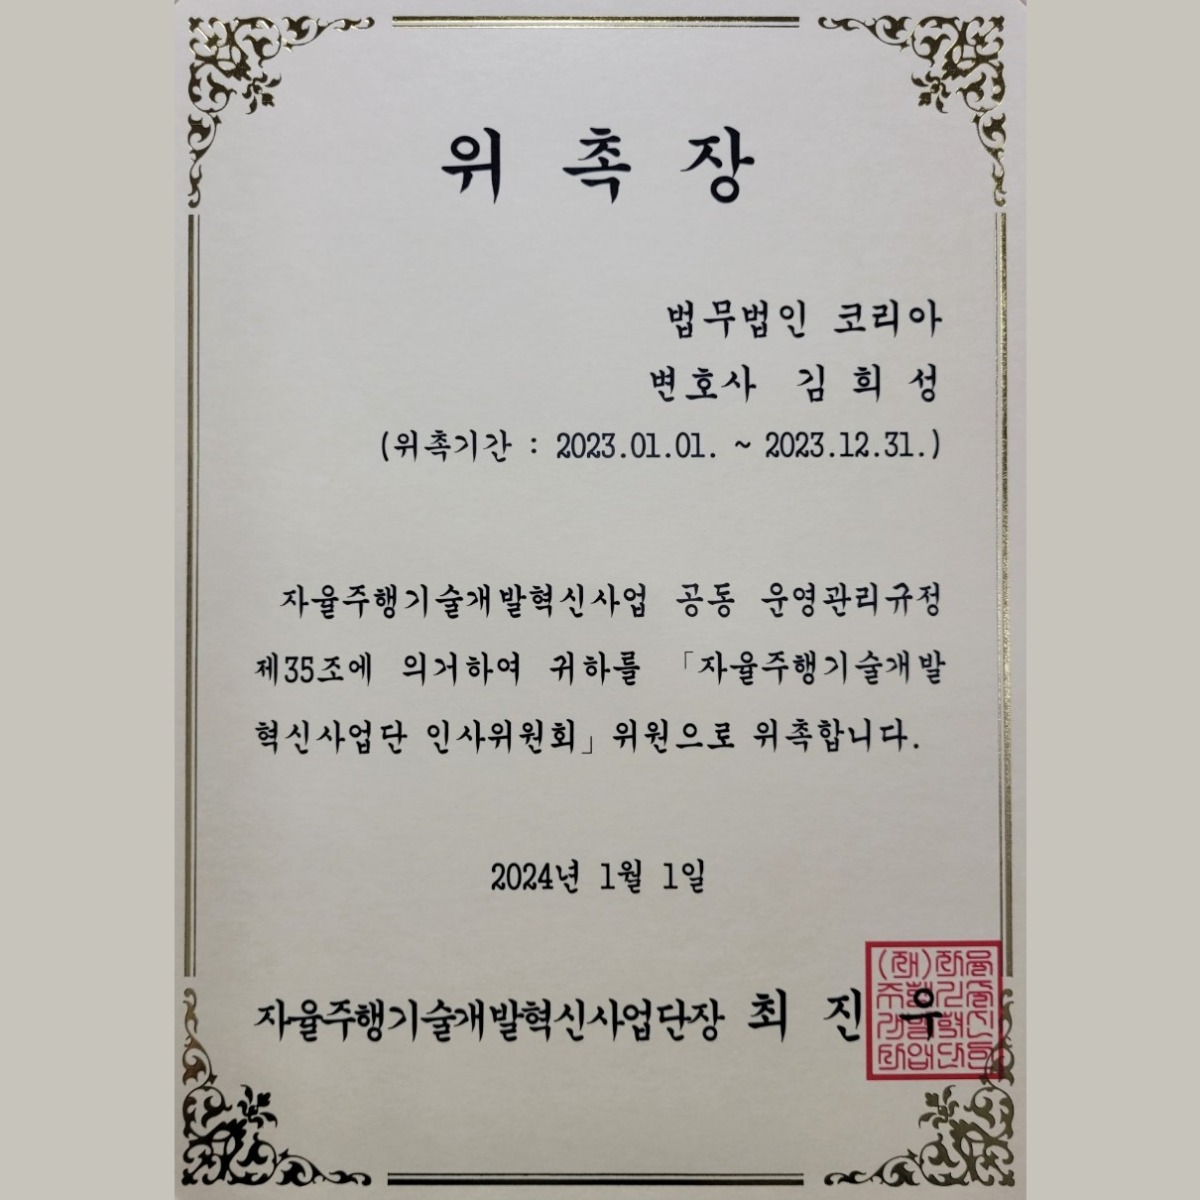 위 촉 장
법무법인 코리아
변호사 김 희 성
(위촉기간 : 2023.01.01. ~ 2023.12.31.)
자율주행기술개발혁신사업 공동 운영관리규정
제35조에 의거하여 귀하를 「자율주행기술개발
혁신사업단 인사위원회」 위원으로 위촉합니다.
2024년 1월 1일
자율주행기술개발혁신사업단장 최 진 우